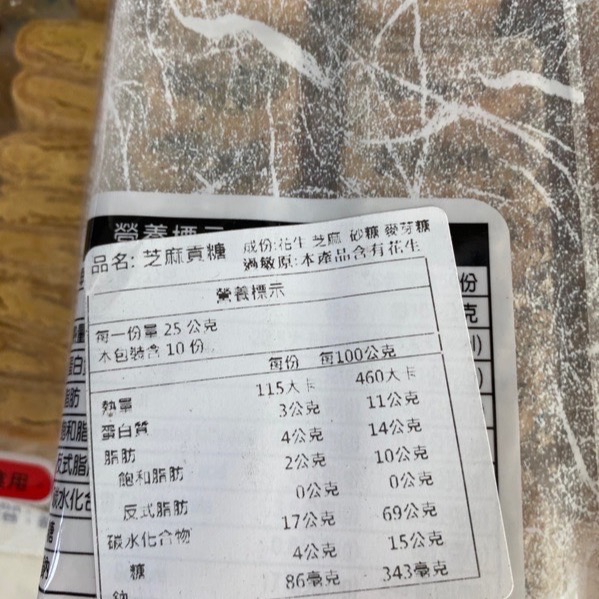 營養標示
品名: 芝麻貢糖
成份:花生 芝麻 砂糖 麥芽糖
過敏原:本產品含有花生
營養標示
每一份量 25 公克
本包裝含 10 份
每份 每100公克
熱量 115大卡 460大卡
蛋白質 3公克 11公克
脂肪 4公克 14公克
飽和脂肪 2公克 10公克
反式脂肪 0公克 0公克
碳水化合物 17公克 69公克
糖 4公克 15公克
鈉 86毫克 343毫克
份
克
脂肪
飽和脂
反式脂
碳水化合
糖
鈉
用